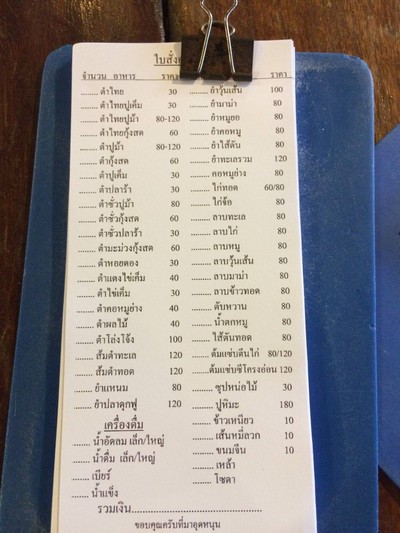 ใบสั่ง
จำนวน อาหาร ราคา
........ตำไทย 30
........ตำไทยปูเค็ม 30
........ตำไทยปูม้า 80-120
........ตำไทยกุ้งสด 60
........ตำปูม้า 80-120
........ตำกุ้งสด 60
........ตำปูเค็ม 30
........ตำปลาร้า 30
........ตำซั่วปูม้า 80
........ตำซั่วกุ้งสด 60
........ตำซั่วปลาร้า 30
........ตำมะม่วงกุ้งสด 60
........ตำหอยดอง 30
........ตำแตงไข่เค็ม 40
........ตำไข่เค็ม 30
........ตำคอหมูย่าง 40
........ตำผลไม้ 40
........ตำโล่งโจ้ง 100
........ส้มตำทะเล 120
........ส้มตำทอด 120
........ยำแหนม 80
........ยำปลาดุกฟู 120
เครื่องดื่ม
........น้ำอัดลม เล็ก/ใหญ่
........น้ำดื่ม เล็ก/ใหญ่
........เบียร์
........น้ำแข็ง
ราคา
........ยำวุ้นเส้น 100
........ยำมาม่า 80
........ยำหมูยอ 80
........ยำคอหมู 80
........ยำไส้ตัน 80
........ยำทะเลรวม 120
........คอหมูย่าง 80
........ไก่ทอด 60/80
........ไก่ช้อ 80
........ลาบทะเล 80
........ลาบไก่ 80
........ลาบหมู 80
........ลาบวุ้นเส้น 80
........ลาบมาม่า 80
........ลาบข้าวทอด 80
........ตับหวาน 80
........น้ำตกหมู 80
........ไส้ตันทอด 80
........ต้มแซ่บตีนไก่ 80/120
........ต้มแซ่บซี่โครงอ่อน 120
........ซุปหน่อไม้ 30
........ปูหิมะ 180
........ข้าวเหนียว 10
........เส้นหมี่ลวก 10
........ขนมจีน 10
........เหล้า
........โซดา
รวมเงิน........................................
ขอบคุณครับที่มาอุดหนุน